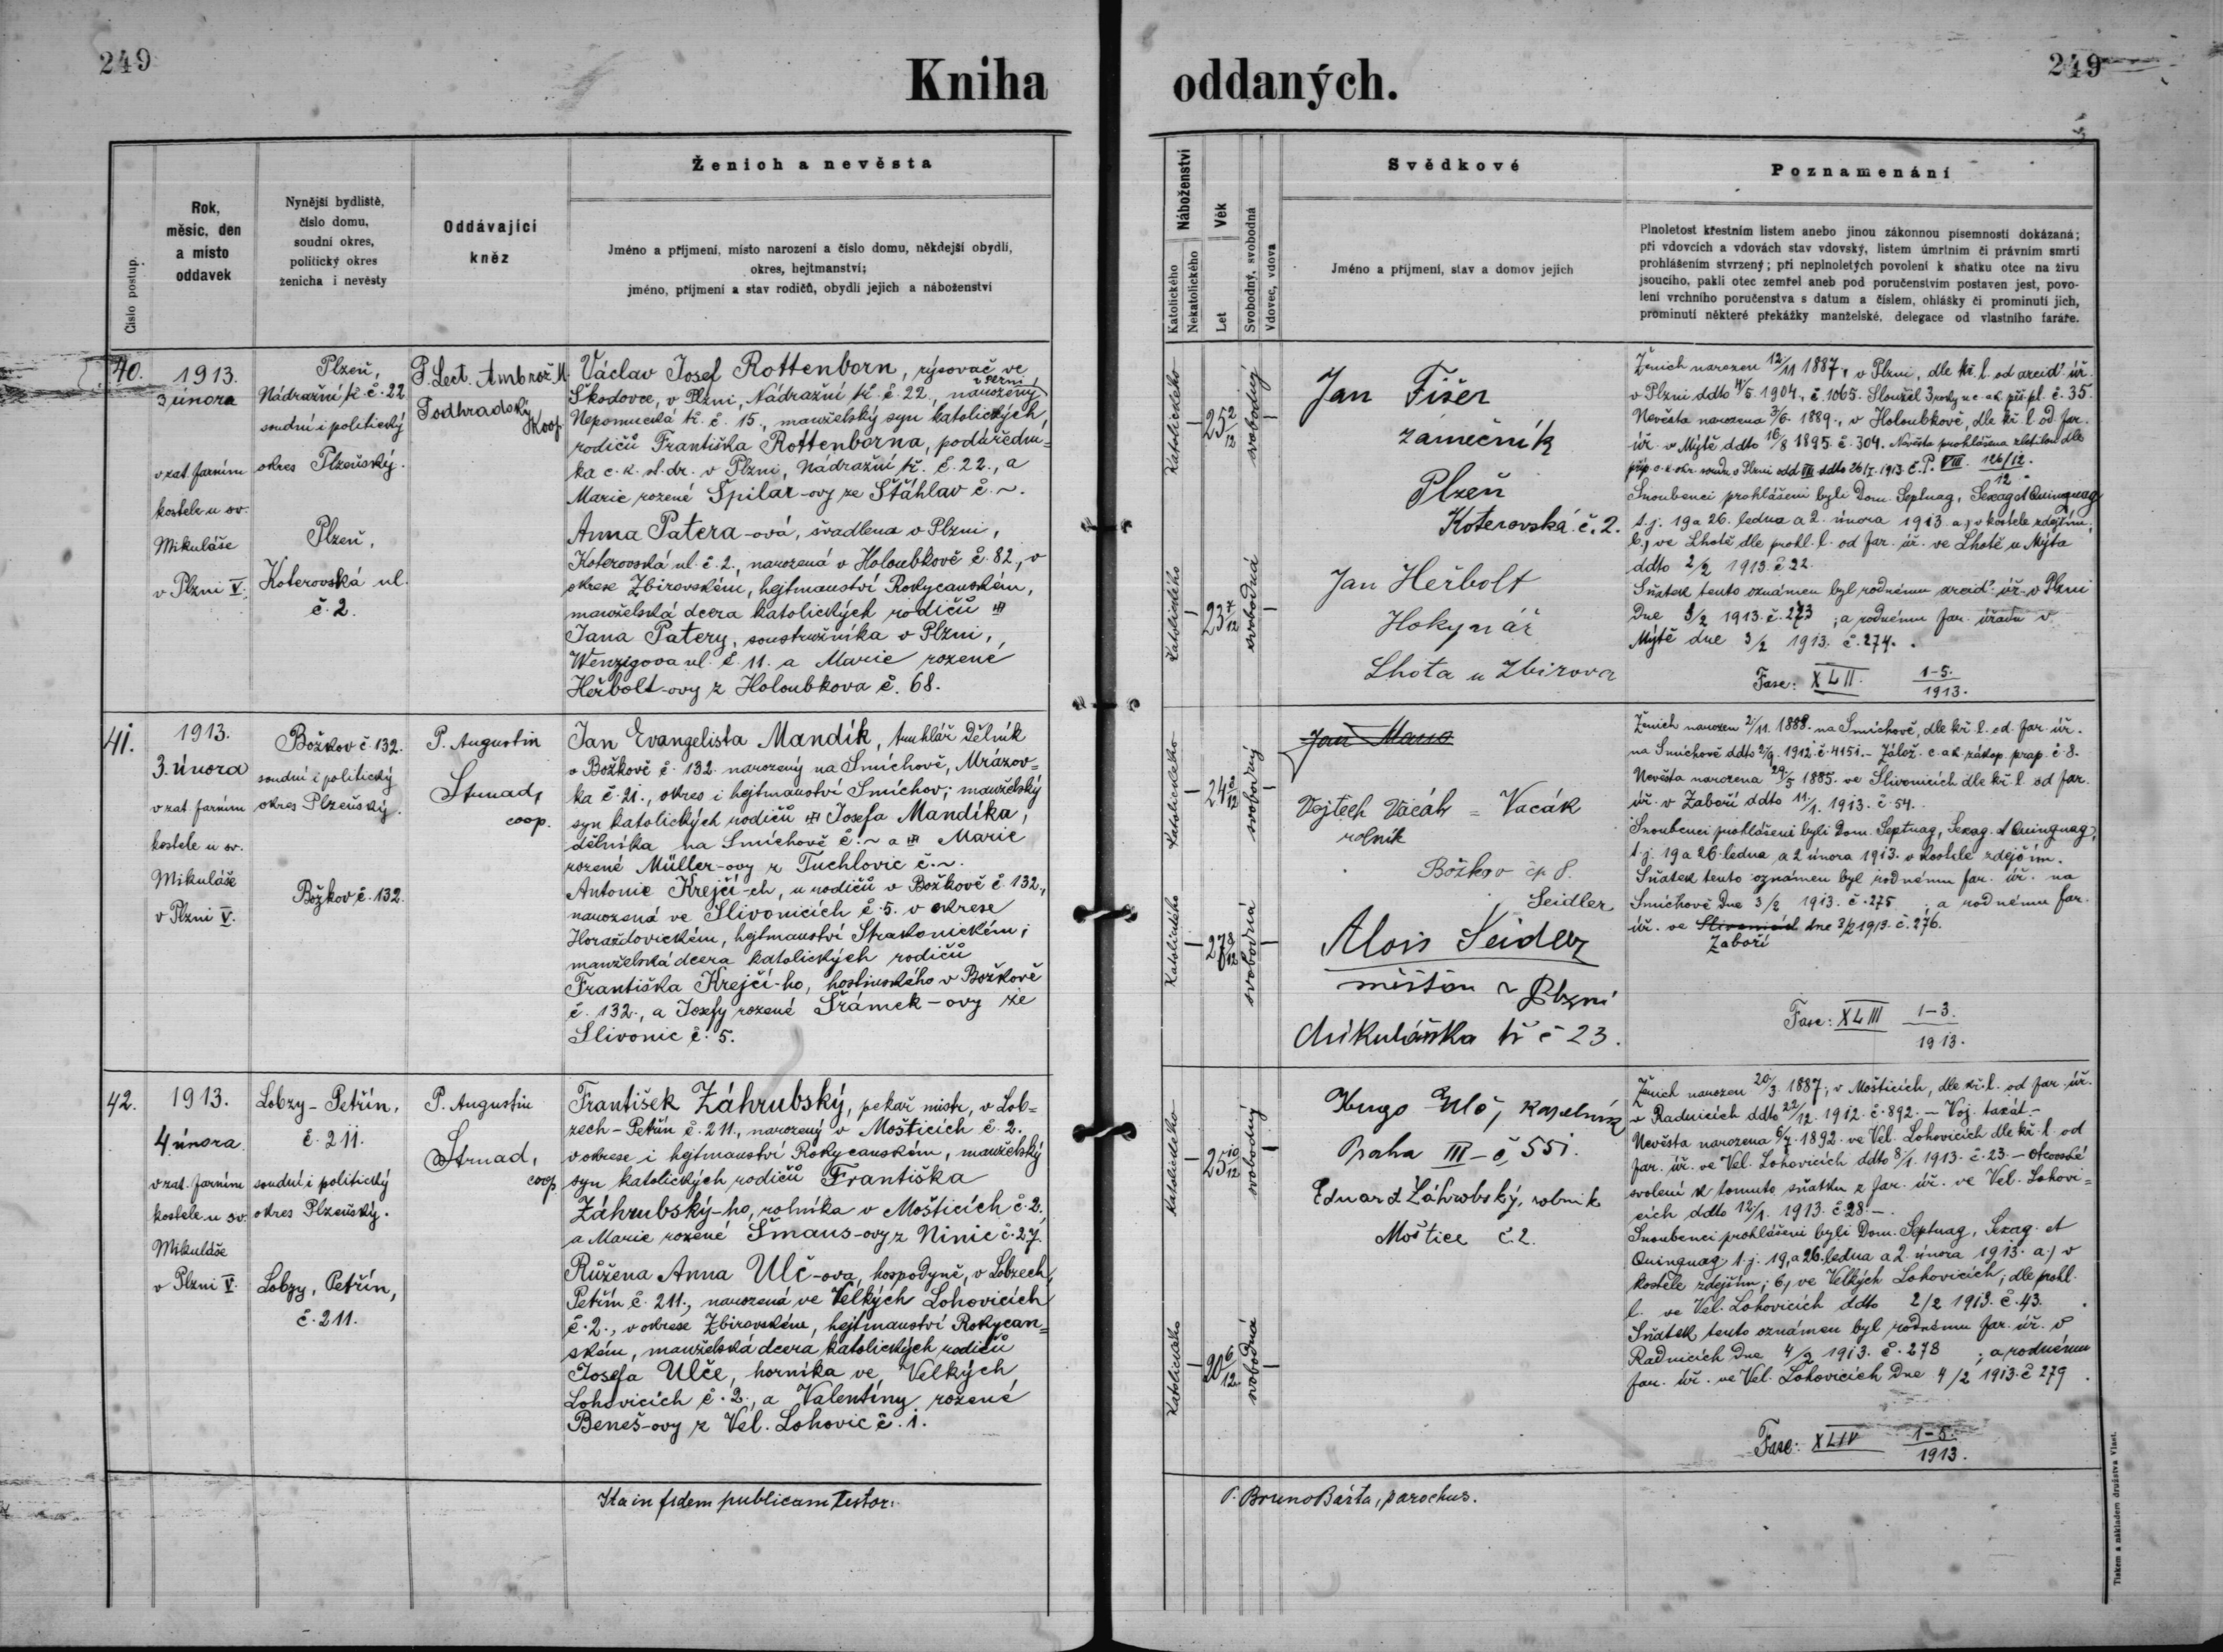 249
Kniha oddaných.
249
Číslo postup.
Rok,
měsíc, den
a místo
oddavek
Nynější bydliště,
číslo domu,
soudní okres,
politický okres
ženicha i nevěsty
Oddávající
kněz
Ženich a nevěsta
Jméno a příjmení, místo narození a číslo domu, někdejší obydlí,
okres, hejtmanství;
jméno, příjmení a stav rodičů, obydlí jejich a náboženství
Náboženství
Katolického
Nekatolického
Věk
Let
Svobodný, svobodná
Vdovec, vdova
Svědkové
Jméno a příjmení, stav a domov jejich
Poznamenání
Plnoletost křestním listem anebo jinou zákonnou písemností dokázaná;
při vdovcích a vdovách stav vdovský, listem úmrtním či právním smrti
prohlášením stvrzený; při neplnoletých povolení k sňatku otce na živu
jsoucího, pakli otec zemřel aneb pod poručenstvím postaven jest, povo-
lení vrchního poručenstva s datum a číslem, ohlášky či prominutí jich,
prominutí některé překážky manželské, delegace od vlastního faráře.
40.
1913.
3 února
v zat. farním
kostele u sv.
Mikuláše
v Plzni V.
Plzeň,
Nádražní tř. č. 22
soudní i politický
okres Plzeňský.
Plzeň,
Koterovská ul.
č. 2.
P. Lect. Ambrož M.
Podhradský
Koop
Václav Josef Rottenborn, rýsovač ve
Škodovce, v Plzni, Nádražní tř. č. 22, narozený
v Plzni,
Nepomucká tř. č. 15., manželský syn katolických
rodičů Františka Rottenborna, podúřední=
ka c. k. st. dr. v Plzni, Nádražní tř. č. 22., a
Marie rozené Špilár-ovy ze Štáhlav č. ~.
Anna Patera-ová, švadlena v Plzni,
Koterovská ul. č. 2., narozená v Holoubkově č. 82, v
okrese Zbirovském, hejtmanství Rokycanském,
manželská dcera katolických rodičů
Jana Patery, soustružníka v Plzni,
Wenzigova ul. č. 11. a Marie rozené
Heřbolt-ovy z Holoubkova č. 68.
Katolického
25 2/12
svobodný
Katolického
23 7/12
svobodná
Jan Fišer
zámečník
Plzeň
Koterovská č. 2.
Jan Heřbolt
Hokynář
Lhota u Zbirova
Ženich narozen 12/11 1887, v Plzni, dle kř. l. od arcid. úř.
v Plzni ddto 4/5 1904., č. 1065. Sloužil 3 roky u c. a k. pěš. pl. č. 35.
Nevěsta narozena 3/6. 1889., v Holoubkově, dle kř. l. od far.
úř. v Mýtě ddto 16/8 1895. č. 304. Nevěsta prohlášena zletilou dle
příp. c. k. okr. soudu v Plzni odd VIII ddto 26/I. 1913. č. P. VIII. 126/12.
12
Snoubenci prohlášeni byli Dom. Septuag, Sexag et Quinquag
t. j. 19 a 26. ledna a 2. února 1913. a, v kostele zdejším,
b, ve Lhotě dle prohl. l. od far. úř. ve Lhotě u Mýta
ddto 2/2 1913. č. 22.
Sňatek tento oznámen byl rodnému arcid. úř. v Plzni
dne 3/2 1913. č. 273 ; a rodnému far. úřadu v
Mýtě dne 3/2 1913. č. 274.
Fasc: XLII. 1-5.
1913.
41.
1913.
3. února
v zat. farním
kostele u sv.
Mikuláše
v Plzni V.
Božkov č. 132.
soudní i politický
okres Plzeňský.
Božkov č. 132.
P. Augustin
Strnad,
coop.
Jan Evangelista Mandík, truhlář dělník
v Božkově č. 132. narozený na Smíchově, Mrázov=
ka č. 21., okres i hejtmanství Smíchov; manželský
syn katolických rodičů Josefa Mandíka,
dělníka na Smíchově č. ~ a Marie
rozené Müller-ovy z Tuchlovic č. ~.
Antonie Krejčí-ch, u rodičů v Božkově č. 132.,
narozená ve Slivonicích č. 5. v okrese
Horažďovickém, hejtmanství Strakonickém;
manželská dcera katolických rodičů
Františka Krejčí-ho, hostinského v Božkově
č. 132., a Josefy rozené Šrámek-ovy ze
Slivonic č. 5.
Katolického
24 2/12
svobodný
Katolického
27 8/12
svobodná
Jan Mano
Vojtěch Vacák = Vacák
rolník
Božkov čp 8.
Seidler
Alois Seidler
měšťan v Plzni
Mikulášská tř č 23.
Ženich narozen 2/11. 1888. na Smíchově, dle kř. l. od. far. úř.
na Smíchově ddto 2/9. 1912. č. 4151. - Zálož. c. a k. zákop. prap. č. 8.
Nevěsta narozena 29/5 1885. ve Slivonicích dle kř. l. od far.
úř. v Zaboří ddto 11/1. 1913. č. 54.
Snoubenci prohlášeni byli Dom. Septuag, Sexag. et Quinquag,
t. j. 19 a 26. ledna a 2 února 1913. v kostele zdejším.
Sňatek tento oznámen byl rodnému far. úř. na
Smíchově dne 3/2 1913. č. 275 ; a rodnému far.
úř. ve Slivonicích dne 3/2 1913. č. 276.
Zaboří
Fasc: XLIII 1-3.
1913.
42.
1913.
4 února
v zat. farním
kostele u sv.
Mikuláše
v Plzni V.
Lobzy-Petřín,
č. 211.
soudní i politický
okres Plzeňský.
Lobzy, Petřín,
č. 211.
P. Augustin
Strnad,
coop
František Záhrubský, pekař. mistr, v Lob=
zech-Petřín č. 211., narozený v Mošticích č. 2.
v okrese i hejtmanství Rokycanském, manželský
syn katolických rodičů Františka
Záhrubský-ho, rolníka v Mošticích č. 2.
a Marie rozené Šmaus-ovy z Ninic č. 27.
Růžena Anna Ulč-ova, hospodyně, v Lobzech,
Petřín č. 211., narozená ve Velkých Lohovicích
č. 2., v okrese Zbirovském, hejtmanství Rokycan=
ském, manželská dcera katolických rodičů
Josefa Ulče, horníka ve Velkých
Lohovicích č. 2., a Valentiny rozené
Beneš-ovy z Vel. Lohovic č. 1.
Katolického
25 10/12
svobodný
Katolického
20 6/12
svobodná
Hugo Ulč, kapelník
Praha III-č, 551.
Eduard Záhrobský, rolník
Moštice č. 2.
Ženich narozen 20/3. 1887; v Mošticích, dle kř. l. od far. úř.
v Radnicích ddto 22/12. 1912. č. 892. - Voj. taxát. -
Nevěsta narozena 6/7. 1892. ve Vel. Lohovicích dle kř. l. od
far. úř. ve Vel. Lohovicích ddto 8/1. 1913. č. 23. - otcovské
svolení k tomuto sňatku z far. úř. ve Vel. Lohovi=
cích ddto 12/1. 1913. č. 28. -
Snoubenci prohlášeni byli Dom. Septuag, Sexag. et
Quinquag, t. j. 19, a 26. ledna a 2. února 1913. a, v
kostele zdejším; b, ve Velkých Lohovicích, dle prohl.
l. ve Vel. Lohovicích ddto 2/2 1913. č. 43.
Sňatek tento oznámen byl rodnému far. úř. v
Radnicích dne 4/2 1913. č. 278 ; a rodnému
far. úř. ve Vel. Lohovicích dne 4/2 1913. č 279.
Fasc: XLIV 1-5.
1913.
Ita in fidem publicam testor:
P. Bruno Bárta, parochus.
Tiskem a nákladem družstva Vlast.